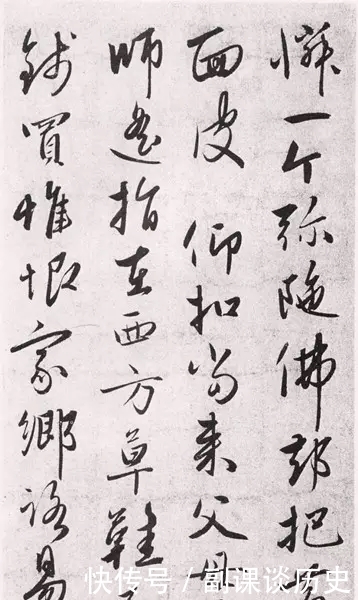 憐一个弥陁佛却把
面皮 仰扣當来父母
師遙指在西方草鞋
錢買惟恨家鄉路易
快传号/副课谈历史